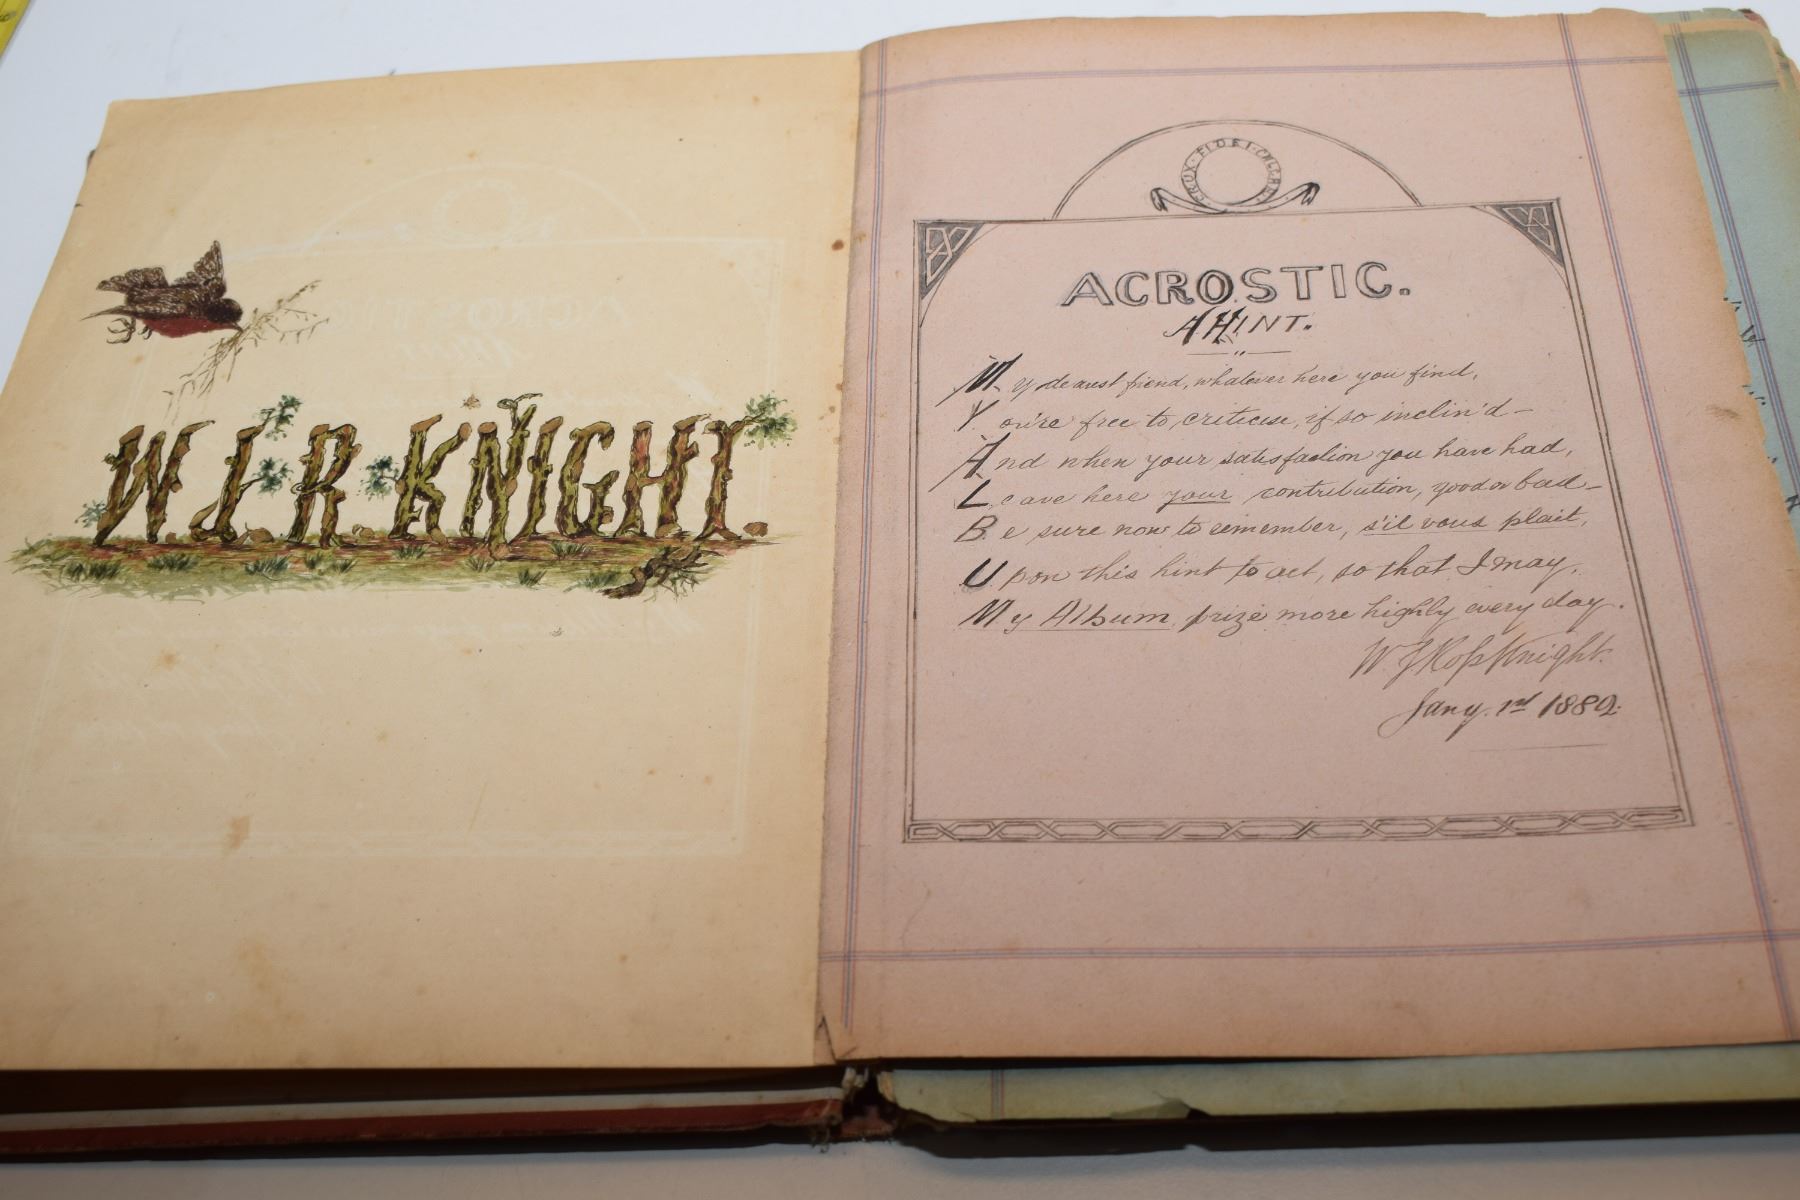 W.J.R. KNIGHT.
CRUX · FIDEI · CALCAR
ACROSTIC.
A HINT.
My dearest friend, whatever here you find,
You're free to criticise, if so inclin'd –
And when your satisfaction you have had,
Leave here your contribution, good or bad –
Be sure now to remember, s'il vous plait,
Upon this hint to act, so that I may.
My Album prize more highly every day.
W J Ross Knight.
Jany. 1st 1882.